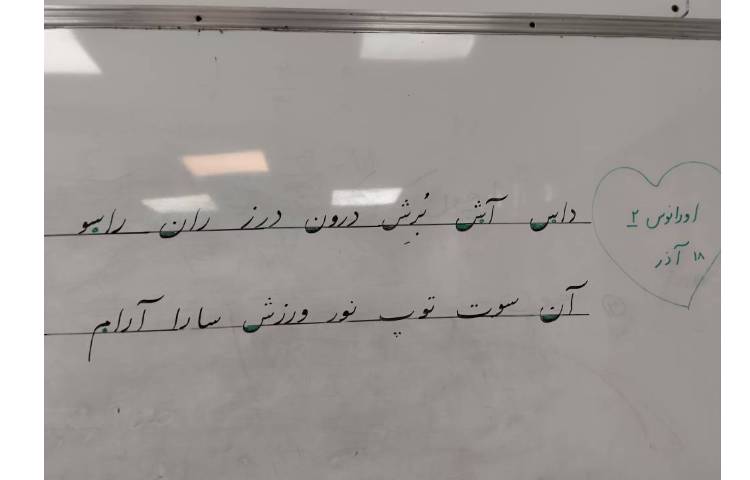 اورانوس ۲
۱۸ آذر
داس آش بُرِش درون درز ران راسو
آن سوت توپ نور ورزش سارا آرام